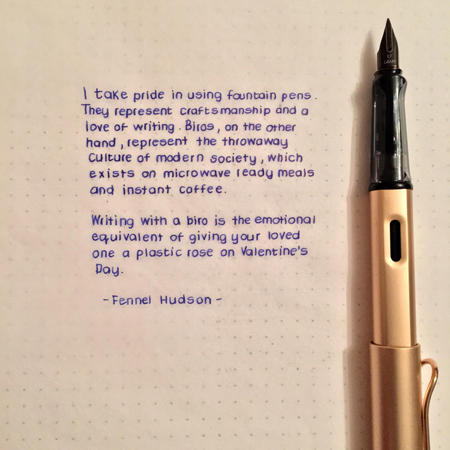 I take pride in using fountain pens.
They represent craftsmanship and a
love of writing. Biros, on the other
hand, represent the throwaway
culture of modern society, which
exists on microwave ready meals
and instant coffee.
Writing with a biro is the emotional
equivalent of giving your loved
one a plastic rose on Valentine's
Day.
- Fennel Hudson -